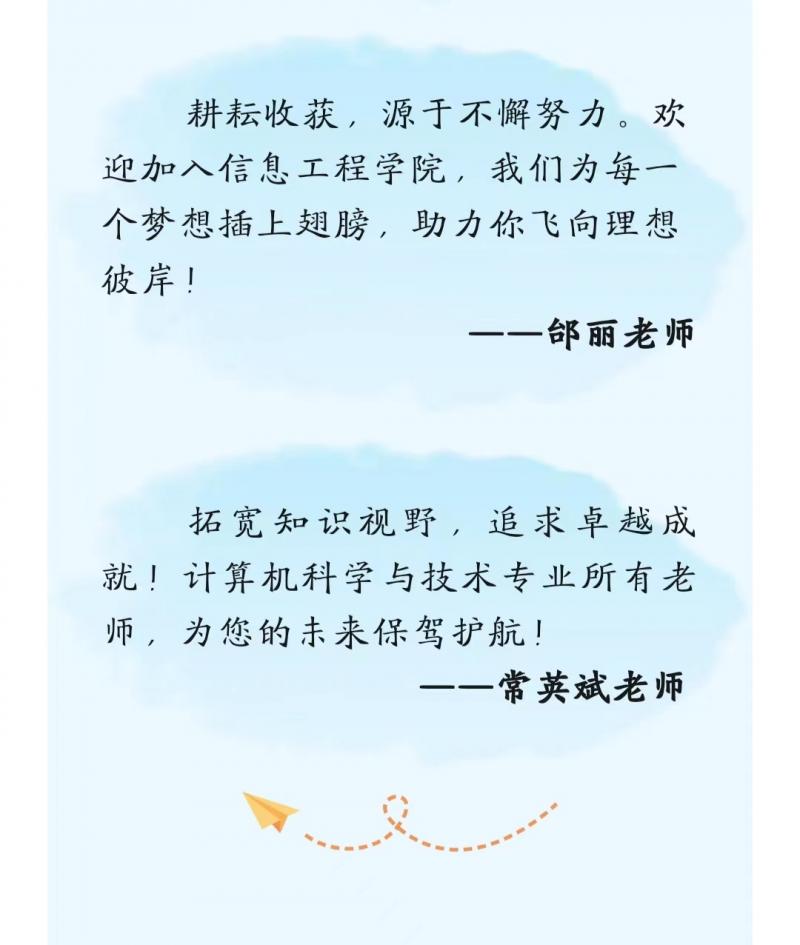 耕耘收获，源于不懈努力。欢
迎加入信息工程学院，我们为每一
个梦想插上翅膀，助力你飞向理想
彼岸！
——邰丽老师
拓宽知识视野，追求卓越成
就！计算机科学与技术专业所有老
师，为您的未来保驾护航！
——常英斌老师